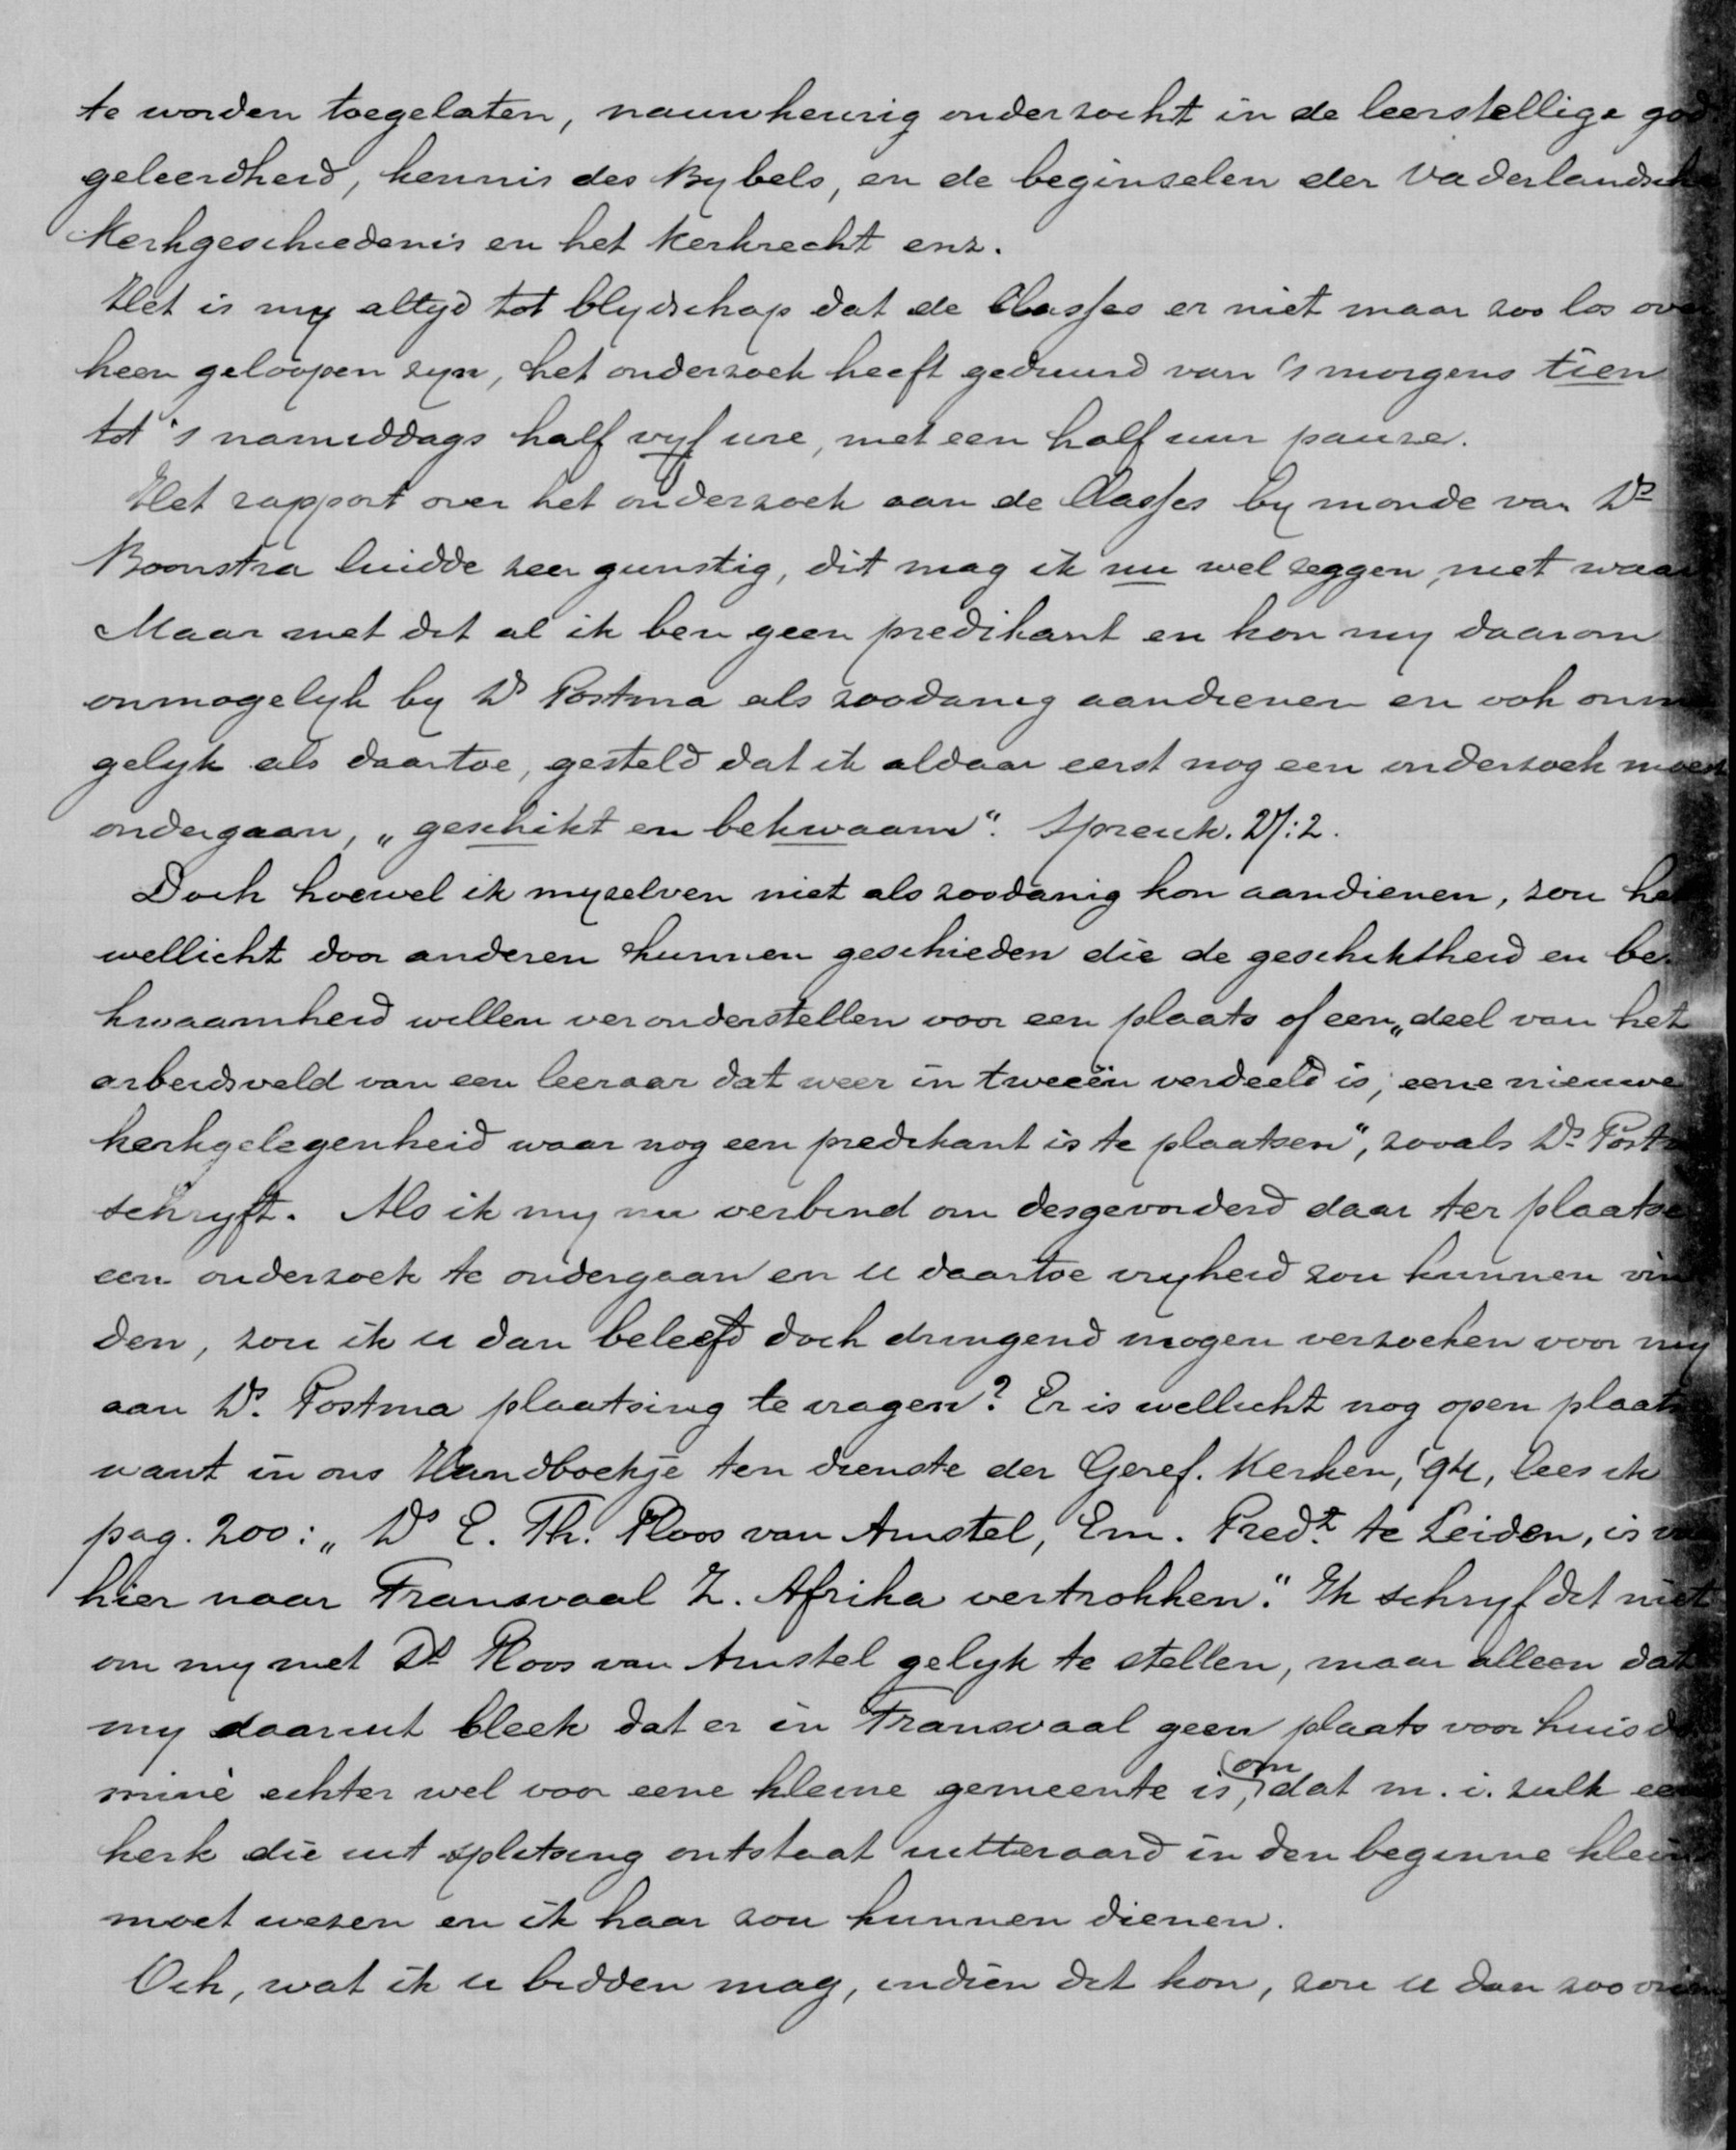 te worden toegelaten, nauwkeurig onderzocht in de leerstellige god
geleerdheid, kennis des Bybels, en de beginselen der Vaderlandsche
Kerkgeschiedenis en het Kerkrecht enz.
Het is my altyd tot blydschap dat de Classes er niet maar zoo los over
heen geloopen zyn, het onderzoek heeft geduurd van 's morgens tien
tot 's namiddags half vyf ure, met een half uur pauze.
Het rapport over het onderzoek aan de Classes by monde van Ds
Boonstra luidde zeer gunstig, dit mag ik nu wel zeggen, niet waar
Maar met dit al ik ben geen predikant en kon my daarom
onmogelyk by Ds Postma als zoodanig aandienen en ook onmo
gelyk als daartoe, gesteld dat ik aldaar eerst nog een onderzoek moest
ondergaan, „geschikt en bekwaam". Spreuk. 27:2.
Doch hoewel ik myzelven niet als zoodanig kon aandienen, zou het
wellicht door anderen kunnen geschieden die de geschiktheid en be-
kwaamheid willen veronderstellen voor een plaats of een „deel van het
arbeidsveld van een leeraar dat weer in tweeën verdeeld is, eene nieuwe
kerkgelegenheid waar nog een predikant is te plaatsen", zooals Ds. Postma
schryft. Als ik my nu verbind om desgevorderd daar ter plaatse
een onderzoek te ondergaan en u daartoe vryheid zou kunnen vin
den, zou ik u dan beleefd doch dringend mogen verzoeken voor my
aan Ds. Postma plaatsing te vragen? Er is wellicht nog open plaats
want in ons Handboekje ten dienste der Geref. Kerken, '94, lees ik
pag. 200: „Ds E. Th. Ploos van Amstel, Em. Predt. te Leiden, is van
hier naar Transvaal Z. Afrika vertrokken." Ik schryf dit niet
om my met Ds Ploos van Amstel gelyk te stellen, maar alleen dat
my daaruit bleek dat er in Transvaal geen plaats voor huisdo
miné echter wel voor eene kleine gemeente is, omdat m. i. zulk een
kerk die uit splitsing ontstaat uitteraard in den beginne klein
moet wezen en ik haar zou kunnen dienen.
Och, wat ik u bidden mag, indien dit kon, zou u dan zoo